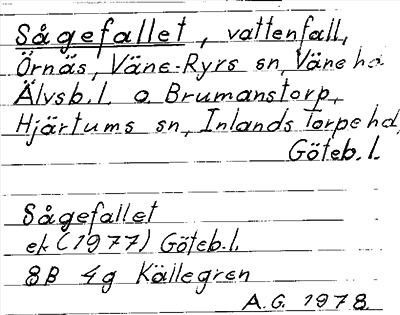 Sågefallet, vattenfall,
Örnäs, Väne-Ryrs sn, Väne hd
Älvsb.l. o. Brumanstorp,
Hjärtums sn, Inlands Torpe hd,
Göteb.l.
Sågefallet
ek (1977) Göteb.l.
8B 4g Källegren
A.G. 1978.